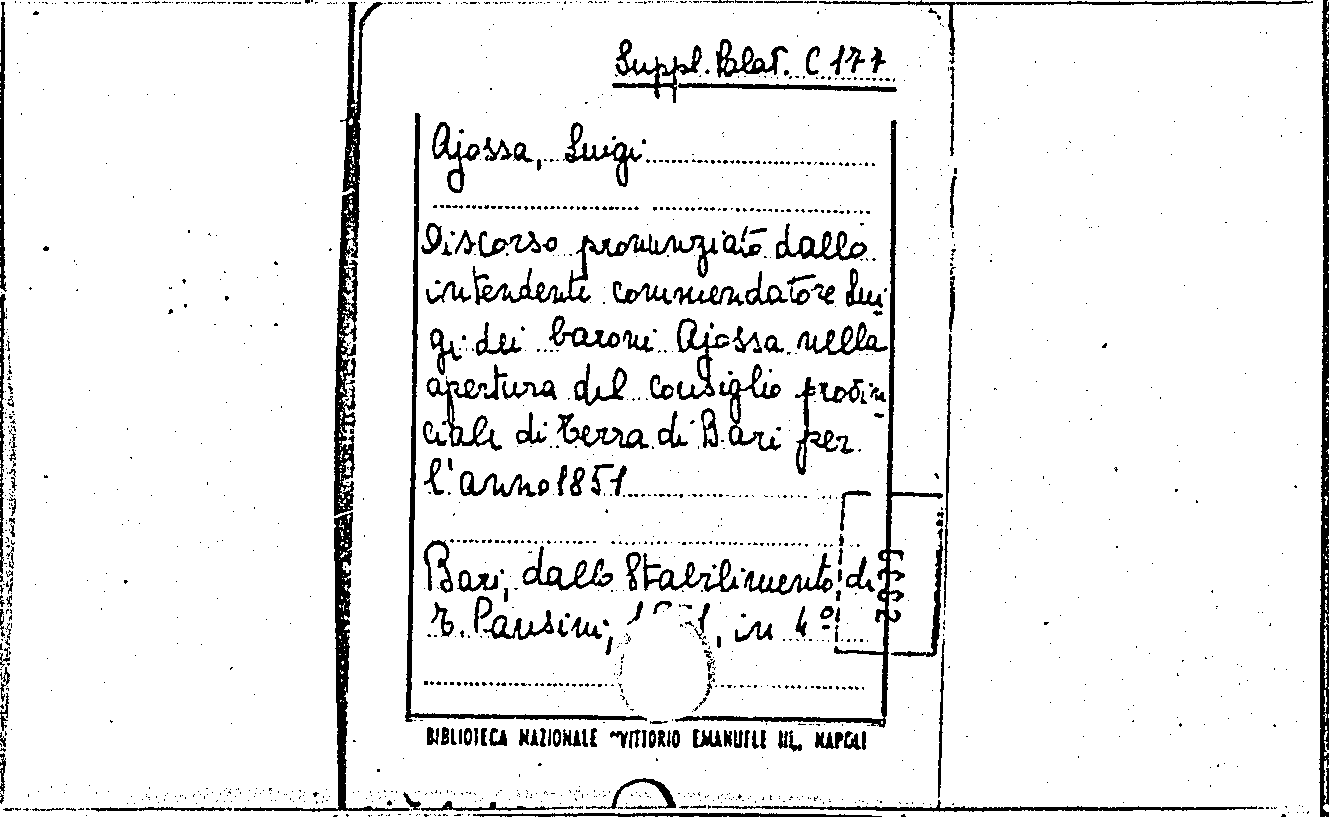 Suppl. Palat. C 177
Ajossa, Luigi
Discorso pronunziato dallo
intendente commendatore Lui
gi dei baroni Ajossa nella
apertura del consiglio provin
ciale di Terra di Bari per
l'anno 1851
Bari, dallo Stabilimento di
T. Pansini, 1851, in 4º
BIBLIOTECA NAZIONALE "VITTORIO EMANUELE III„ NAPOLI